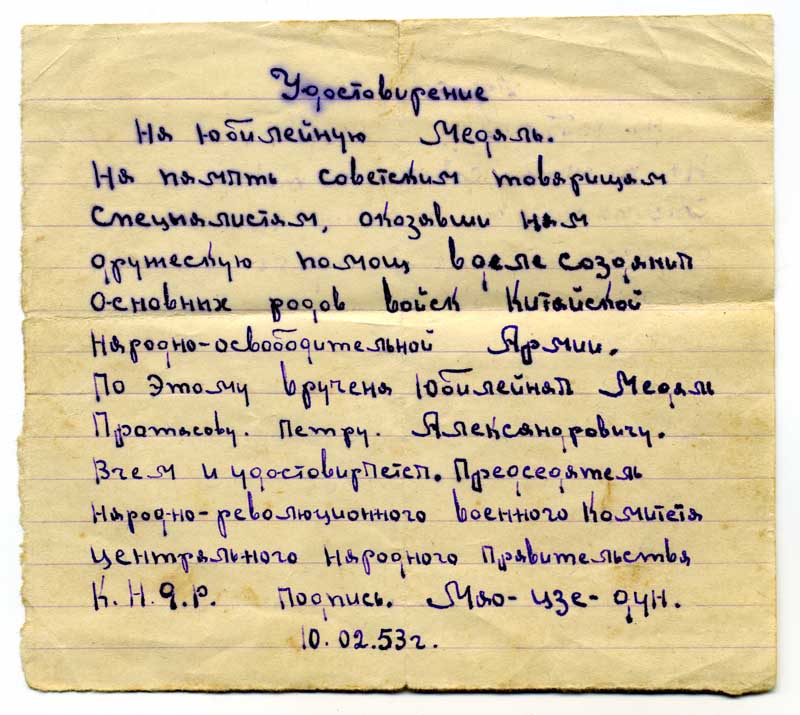 Удостовирение
На Юбилейную Медаль.
На память советским товарищам
Специалистам, оказавши нам
дружескую помощ вделе создания
Основних родов войск Китайской
Народно-освободительной Армии.
По Этому вручена Юбилейная Медаль
Протасову. Петру. Александровичу.
Вчем и удостовиряется. Председатель
Народно-революционного военного Комитета
Центрального Народного Правительства
К.Н.Д.Р. Подпись. Мао-цзе-дун.
10.02.53г.